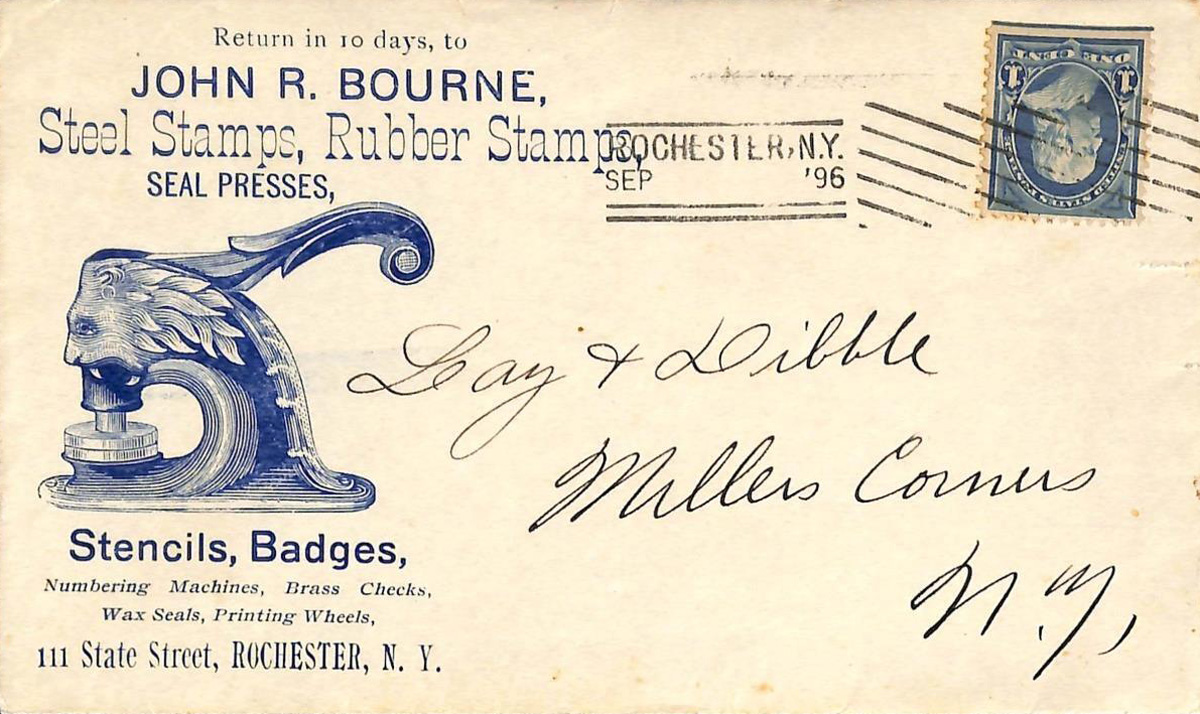 Return in 10 days, to
JOHN R. BOURNE,
Steel Stamps, Rubber Stamps,
SEAL PRESSES,
Stencils, Badges,
Numbering Machines, Brass Checks,
Wax Seals, Printing Wheels,
111 State Street, ROCHESTER, N. Y.
ROCHESTER, N.Y.
SEP '96
1 ONE CENT 1
UNITED STATES POSTAGE
Lay & Dibble
Millers Corners
N.Y,